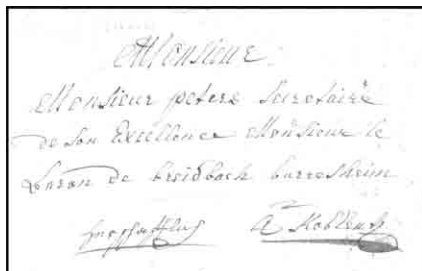 Monsieur
Monsieur peters Secretaire
de Son Excellence Monsieur le
Baron de breidbach burresheim
A Koblentz